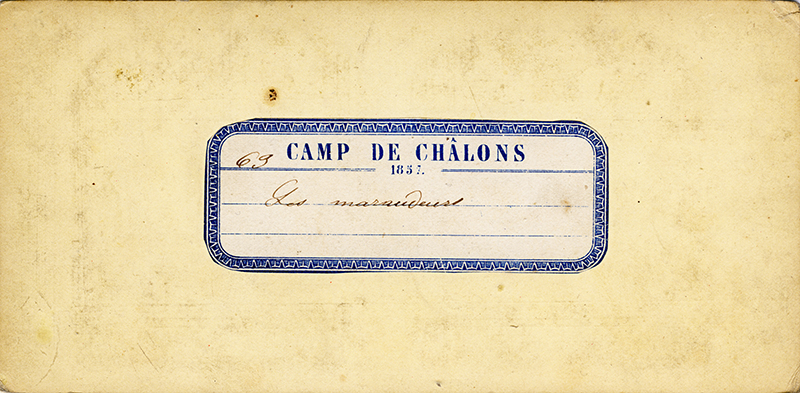 63 CAMP DE CHÂLONS
1857.
Les maraudeurs